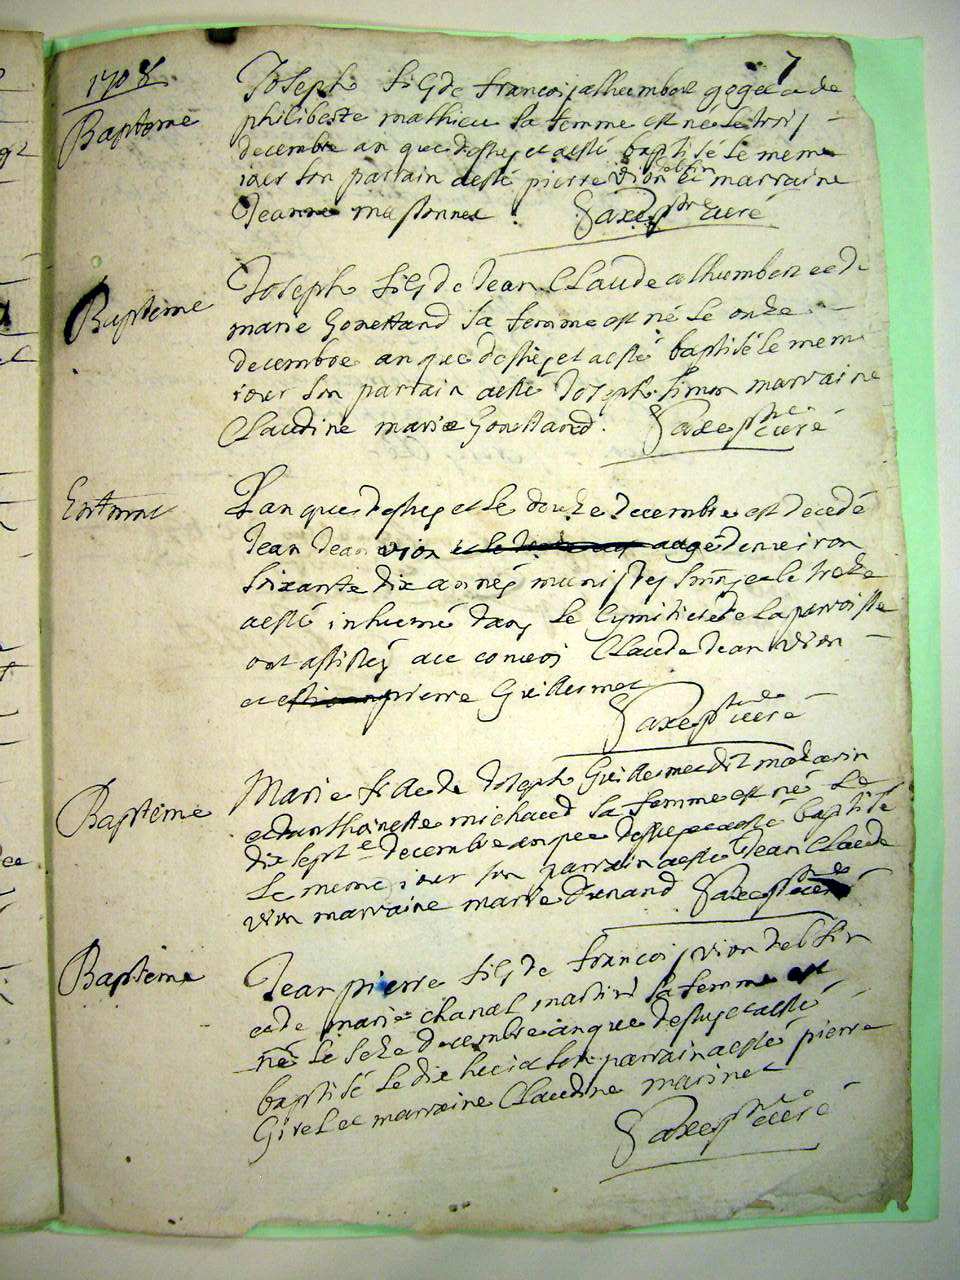 7
1708
Bapteme
Joseph fils de francois allhumbert goget et de
philiberte mathieu sa femme est ne le trois
decembre an que dessus et a esté baptisé le meme
iour son parrain a esté pierre vion delfin et marraine
Jeanne massonnet Saxe pbre curé
Bapteme
Joseph fils de Jean Claude allhumbert et de
marie Gonettand sa femme est né le onze
decembre an que dessus et a esté baptisé le meme
iour son parrain a esté Joseph Simon marraine
Claudine marie Gonettand. Saxe pbre curé
Lan que dessus et le douze decembre est decedé
Jean Jean vion aagé denviron
soixante dix annés munis des et le treze
a esté inhumé dans le cymitiere de la parroisse
ont assistés au convoi Claude Jean vion
et pierre Guillermet
Saxe pbre curé
Bapteme
Marie fille de Joseph Guillermet dit
et danthoinette michaud sa femme est né le
dix sept e decembre an que dessus et a esté baptisé
le meme iour son parrain a esté Jean Claude
vion marraine marie Dunand Saxe pbre curé
Bapteme
Jean pierre fils de francois vion delfin
et de marie chanal martin sa femme est
né le seze decembre an que dessus et a esté
baptisé le dix huict son parrain a esté pierre
Girel et marraine Claudine marinet
Saxe pbre curé